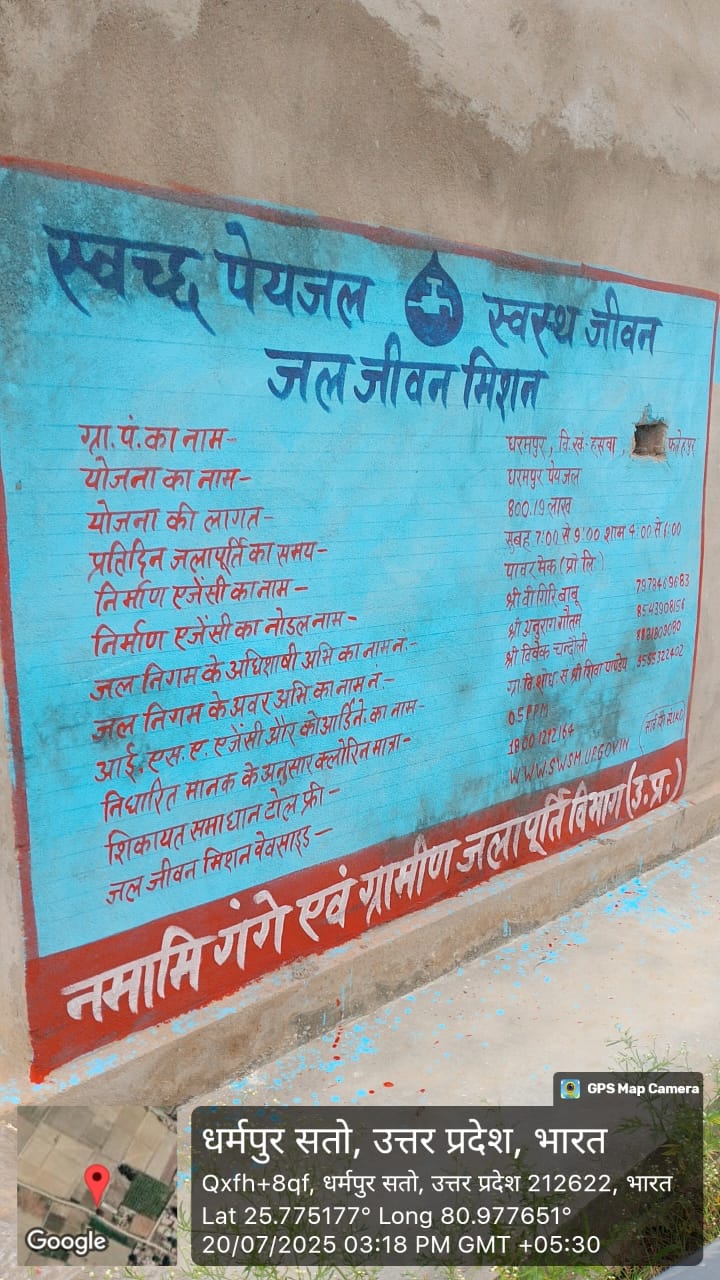 स्वच्छ पेयजल स्वस्थ जीवन
जल जीवन मिशन
ग्रा.पं.का नाम- धरमपुर, वि.खं.-हसवा, फतेहपुर
योजना का नाम- धरमपुर पेयजल
योजना की लागत- 800.19 लाख
प्रतिदिन जलापूर्ति का समय- सुबह 7:00 से 9:00 शाम 4:00 से 6:00
निर्माण एजेंसी का नाम- पावर मेक (प्रो लि.)
निर्माण एजेंसी का नोडल नाम- श्री वी गिरि बाबू 7978469683
जल निगम के अधिशाषी अभि का नाम न.- श्री अनुराग गौतम 8543908156
जल निगम के अवर अभि का नाम नं.- श्री विवेक चन्दौली
आई.एस.ए. एजेंसी और कोआर्डिने. का नाम- ग्रा. वि. शोध. सं श्री शिवा पाण्डेय 9595322402
निधारित मानक के अनुसार क्लोरिन मात्रा- 05 PPM
शिकायत समाधान टोल फ्री- 18001212164
जल जीवन मिशन वेवसाइड- WWW.SWSM.UP.GOV.IN
नमामि गंगे एवं ग्रामीण जलापूर्ति विभाग (उ.प्र.)
GPS Map Camera
धर्मपुर सतो, उत्तर प्रदेश, भारत
Qxfh+8qf, धर्मपुर सतो, उत्तर प्रदेश 212622, भारत
Lat 25.775177° Long 80.977651°
20/07/2025 03:18 PM GMT +05:30
Google